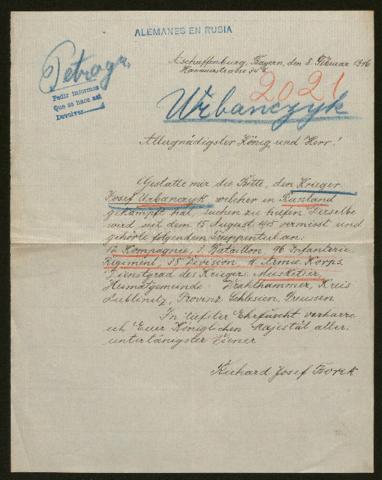 ALEMANES EN RUSIA
Petrogr.
Pedir informes
Que se hace así
Devolver
Aschaffenburg, Bayern, den 8. Februar 1916
Hanauerstrasse
2021
Urbanczyk
Allergnädigster König und Herr!
Gestatte mir die Bitte, den Krieger
Josef Urbanczyk welcher in Russland
gekämpft hat, suchen zu helfen. Derselbe
wird seit dem 15. August 1915 vermisst und
gehörte folgendem Truppenteil an:
12 Kompagnie, 3. Bataillon, 96 Infanterie
Regiment, 38 Division, 4 Armee Korps.
Dienstgrad des Krieger: Musketier,
Heimatgemeinde: Krais
Lublinitz, Provinz Schlesien Preussen
In tiefster Ehrfurcht verharre
ich Euer Königlichen Majestät aller
untertänigster Diener
Richard Josef